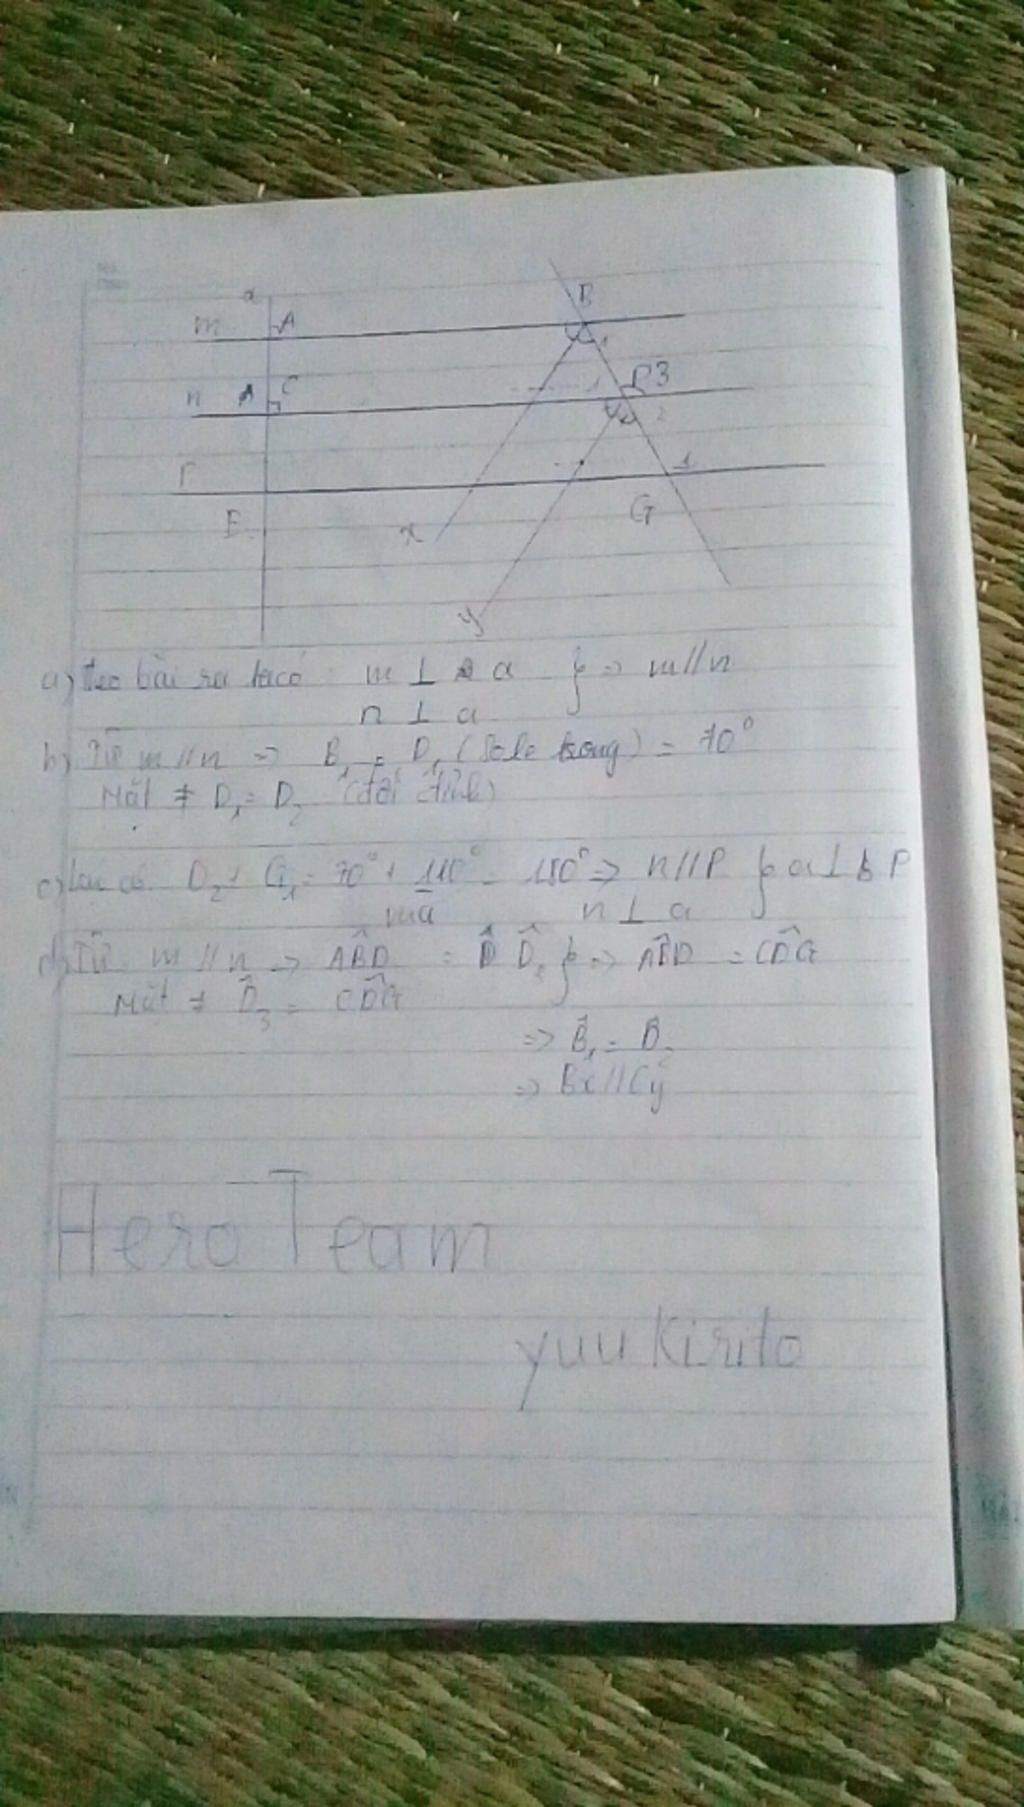 a
m A B
1
n A C 1 D3
2
P 1
E G
x
y
a) theo bài ra ta có : m ⊥ a } => m // n
n ⊥ a
b) Từ m // n => B₁ = D₁ (so le trong) = 70°
Mặt ≠ D₁ = D₂ (đối đỉnh)
c) có D₂ + G₁ = 70° + 110° = 180° => n // P } a ⊥ P
mà n ⊥ a
d) Từ m // n => ABD̂ = D̂₃ } => ABD̂ = CDĜ
Mặt ≠ D̂₃ = CDĜ
=> B̂₁ = D̂₂
=> Bx // Cy
Hero Team
yuu Kirito